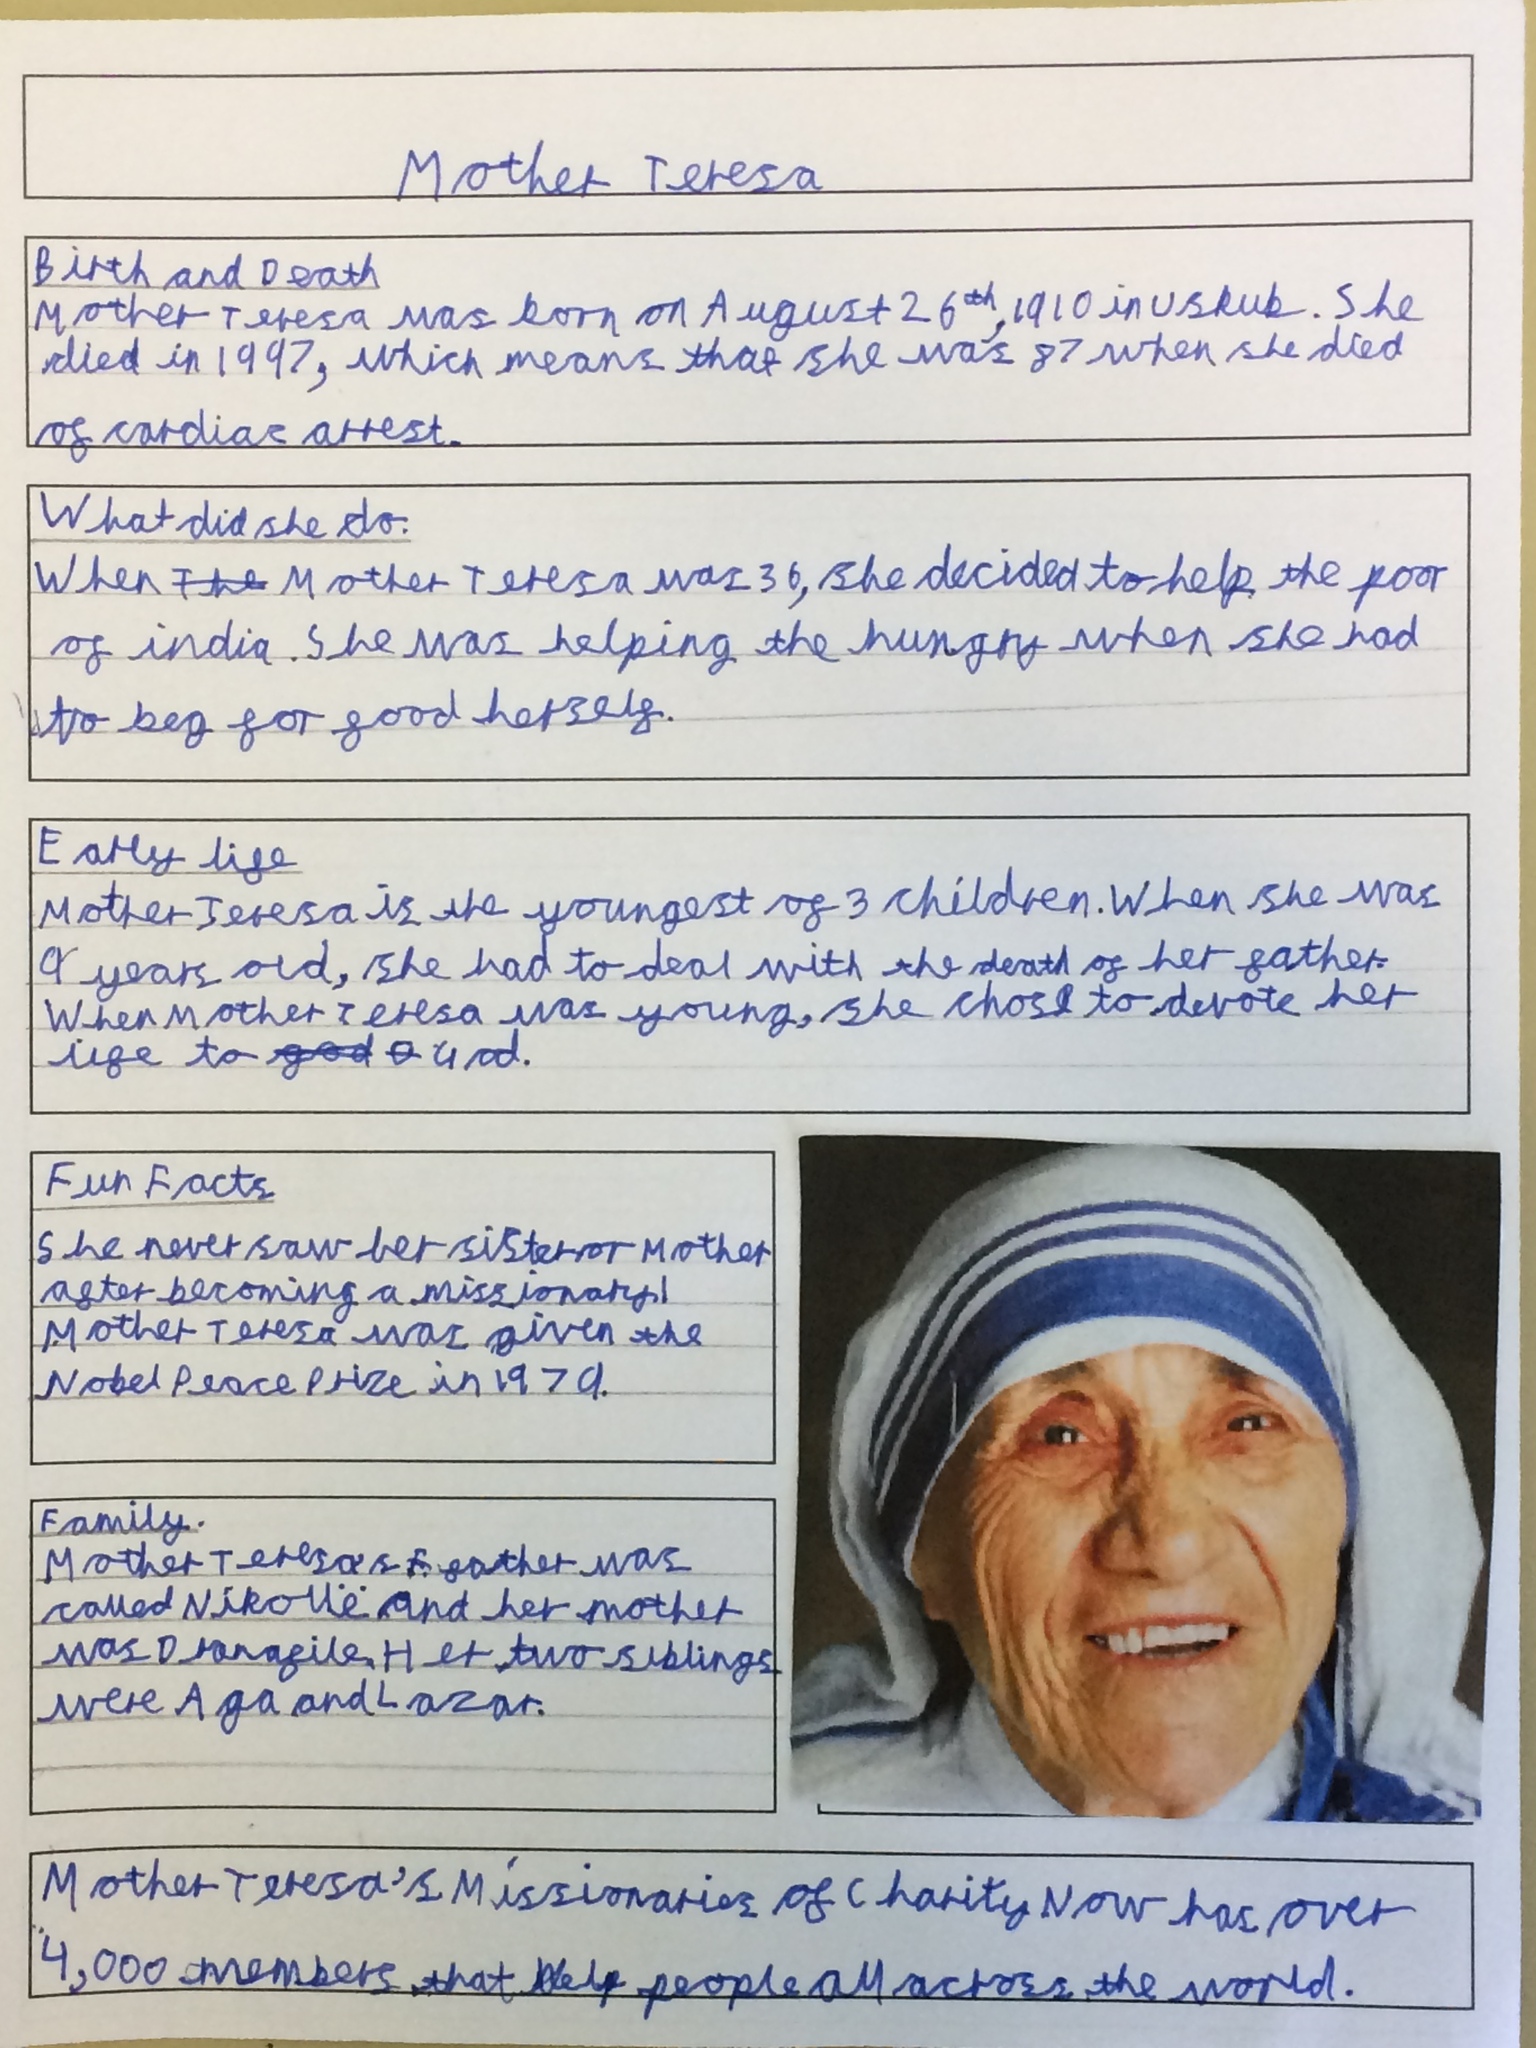 Mother Teresa
Birth and Death
Mother Teresa was born on August 26th, 1910 in Uskub. She
died in 1997, which means that she was 87 when she died
of cardiac arrest.
What did she do.
When The Mother Teresa was 36, she decided to help the poor
of india. She was helping the hungry when she had
to beg for food herself.
Early life
Mother Teresa is the youngest of 3 children. When she was
9 years old, she had to deal with the death of her father.
When Mother Teresa was young, she chose to devote her
life to god God.
Fun Facts
She never saw her sister or Mother
after becoming a missionary!
Mother Teresa was given the
Nobel Peace Prize in 1979.
Family.
Mother Teresa's father was
called Nikollë and her mother
was Dranafile. Her two siblings
were Aga and Lazar.
Mother Teresa's Missionaries of Charity Now has over
4,000 members that help people all across the world.